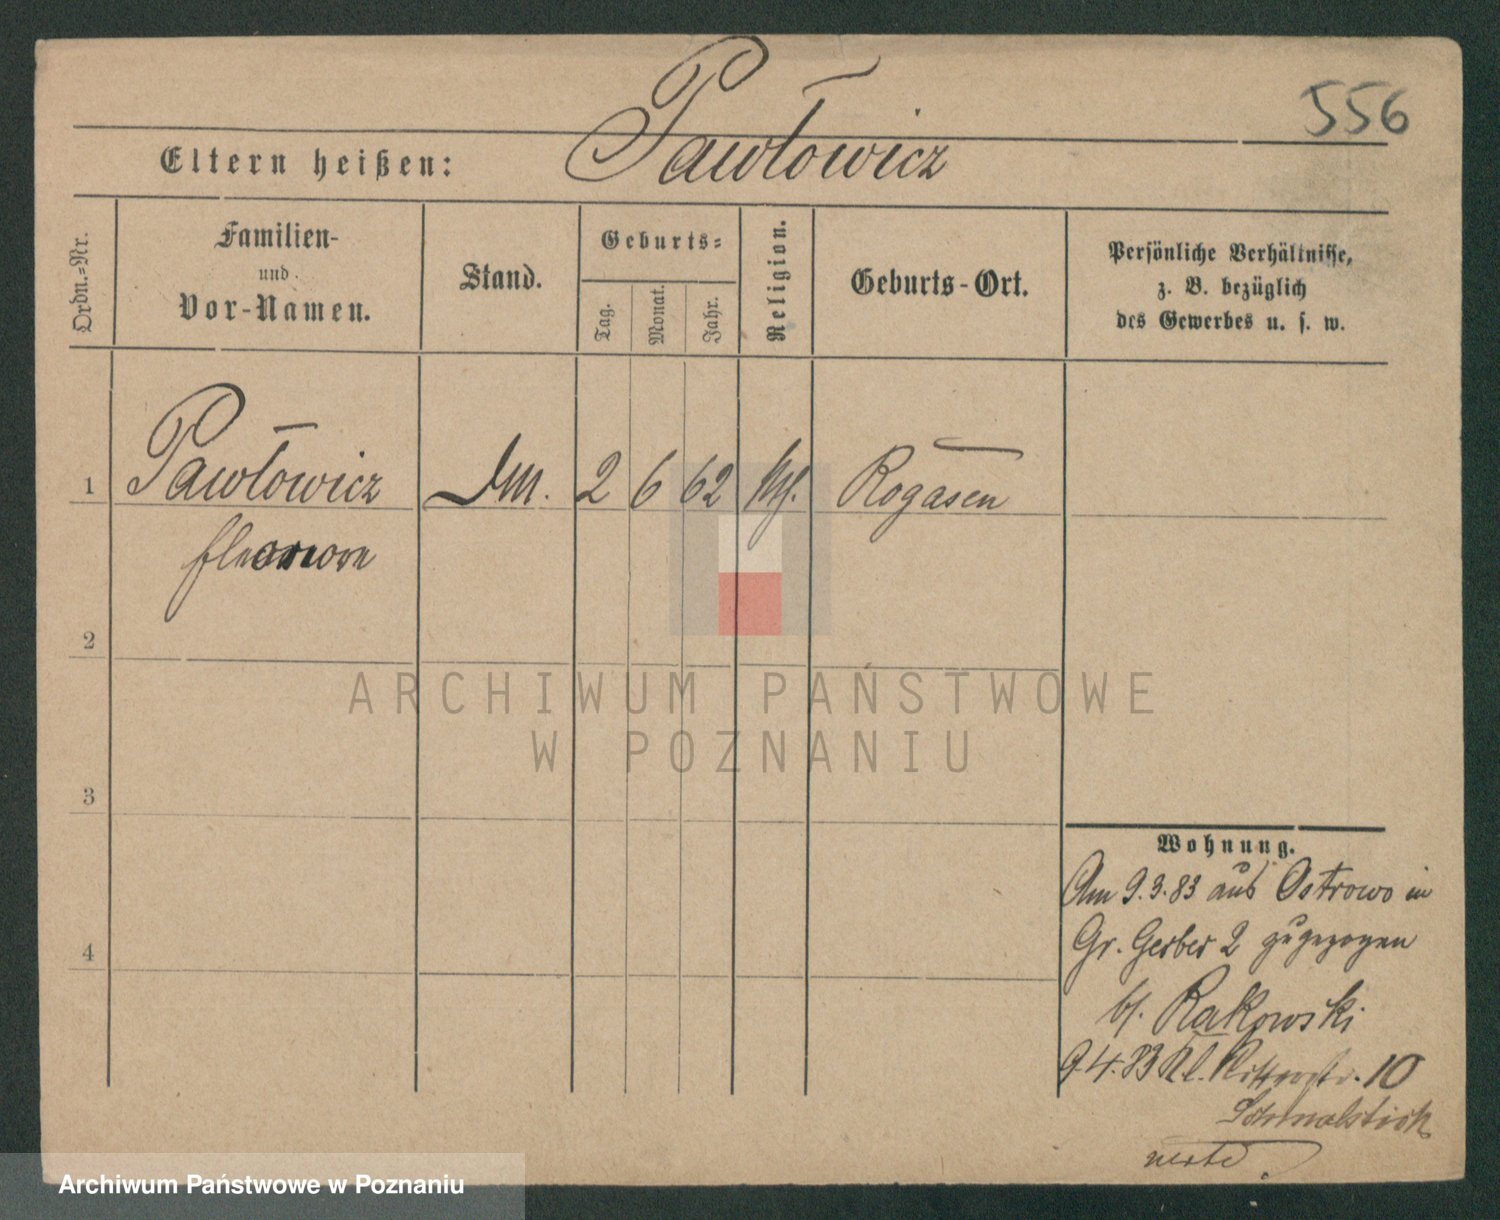 556
Pawłowicz
Eltern heißen:
Ordn.-Nr.
Familien-
und
Vor-Namen.
Stand.
Geburts-
Tag.
Monat.
Jahr.
Religion.
Geburts-Ort.
Persönliche Verhältnisse,
z. B. bezüglich
des Gewerbes u. s. w.
1 Pawłowicz 2 6 62 Rogasen
2
3
4
ARCHIWUM PAŃSTWOWE
W POZNANIU
Wohnung.
Am 9.3.83 aus Ostrowo in
Gr. Gerber 2 zugezogen
bj. Rakowski
9.4.83 Kl. Ritterstr. 10
Archiwum Państwowe w Poznaniu